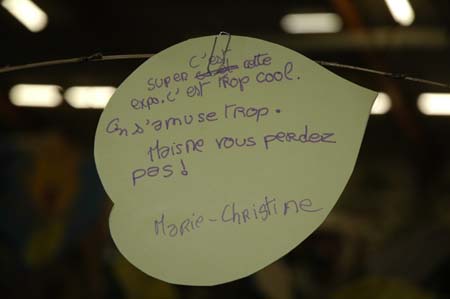 C'est
super cette
expo. C'est trop cool.
On s'amuse trop.
Mais ne vous perdez
pas !
Marie-Christine